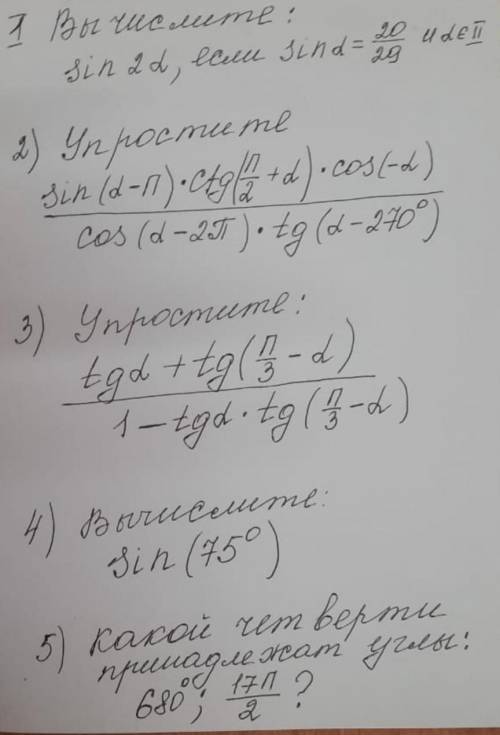 1 Вычислите:
sin 2α, если sinα = 20/29 и α ∈ II
2) Упростите
sin(α-π)·ctg(π/2+α)·cos(-α)
cos(α-2π)·tg(α-270°)
3) Упростите:
tgα + tg(π/3 - α)
1 - tgα · tg(π/3 - α)
4) Вычислите:
sin(75°)
5) Какой четверти
принадлежат углы:
680°; 17π/2 ?